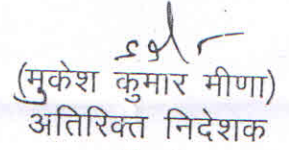 (मुकेश कुमार मीणा)
अतिरिक्त निदेशक